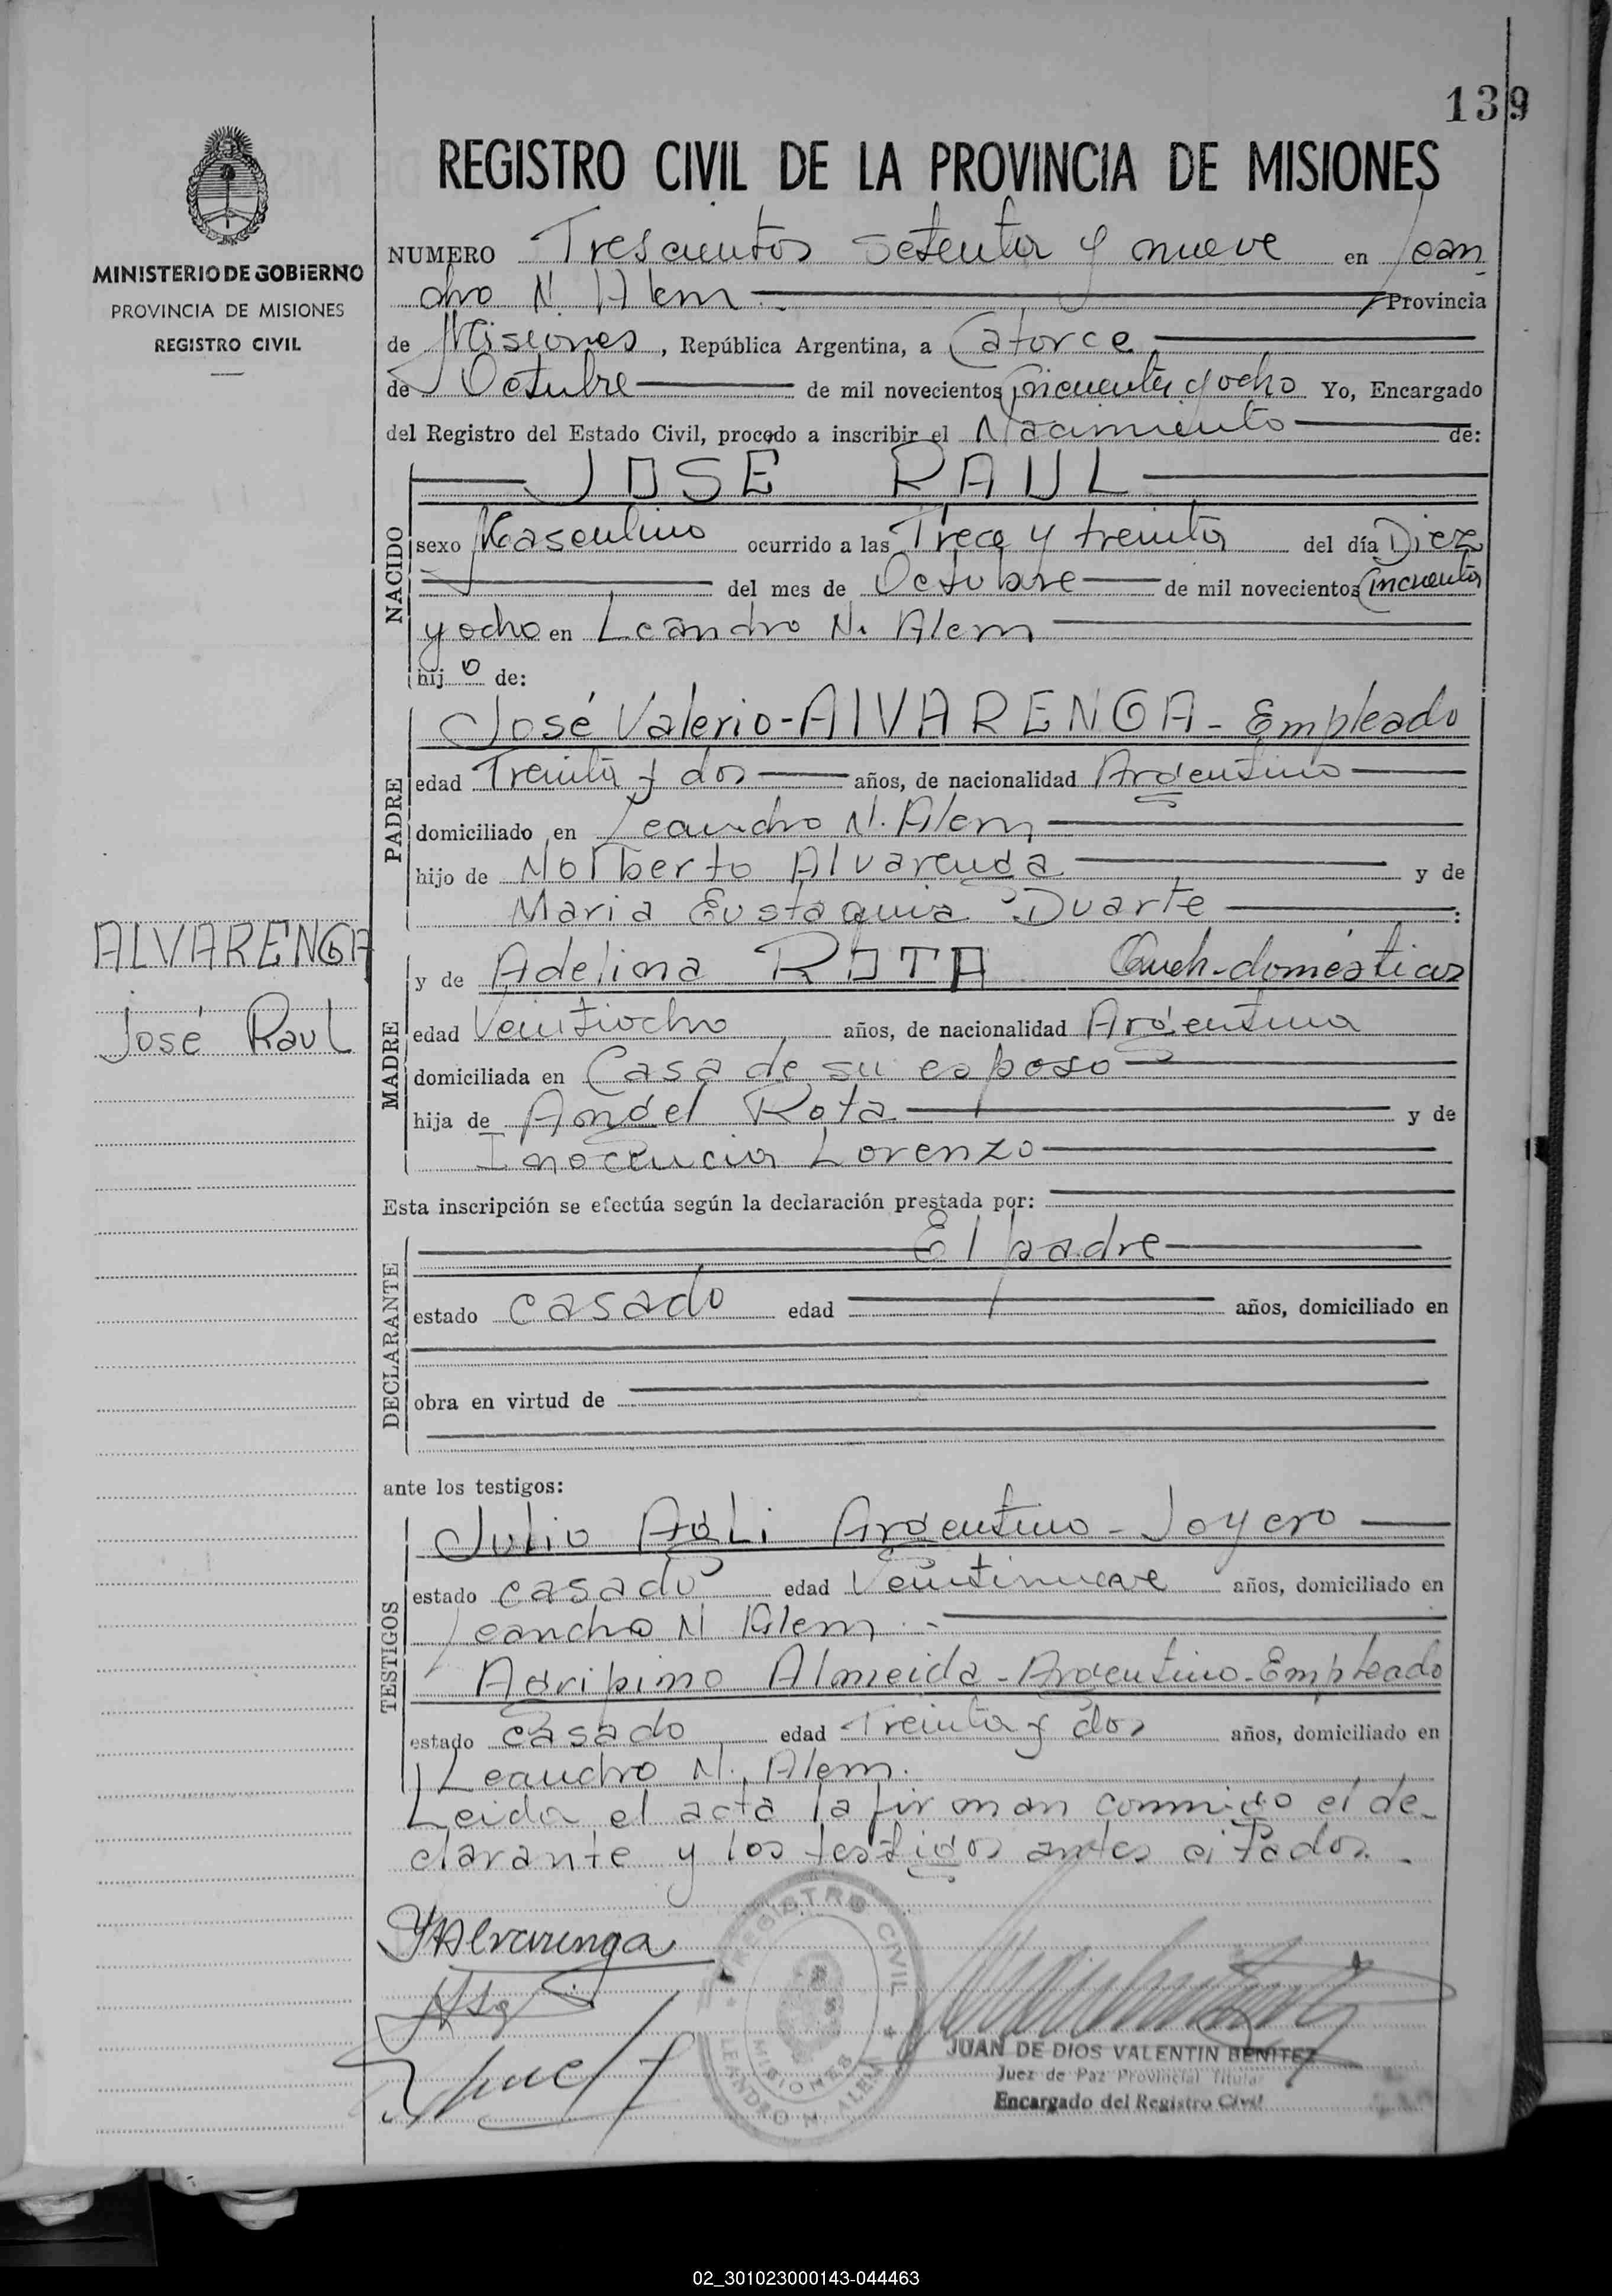 139
MINISTERIO DE GOBIERNO
PROVINCIA DE MISIONES
REGISTRO CIVIL
REGISTRO CIVIL DE LA PROVINCIA DE MISIONES
NUMERO Trescientos setenta y nueve en Lean
dro N. Alem Provincia
de Misiones, República Argentina, a Catorce
de Octubre de mil novecientos cincuenta y ocho Yo, Encargado
del Registro del Estado Civil, procedo a inscribir el Nacimiento de:
NACIDO
JOSE RAUL
sexo Masculino ocurrido a las Trece y treinta del día Diez
del mes de Octubre de mil novecientos Cincuenta
y ocho en Leandro N. Alem
hijo de:
PADRE
José Valerio - ALVARENGA - Empleado
edad Treinta y dos años, de nacionalidad Argentino
domiciliado en Leandro N. Alem
hijo de Norberto Alvarenga y de
Maria Eustaquia Duarte :
ALVARENGA
José Raul
MADRE
y de Adelina ROTA domésticos
edad Veintiocho años, de nacionalidad Argentina
domiciliada en Casa de su esposo
hija de Angel Rota y de
Inocencia Lorenzo
Esta inscripción se efectúa según la declaración prestada por:
DECLARANTE
El padre
estado casado edad años, domiciliado en
obra en virtud de
ante los testigos:
TESTIGOS
Julio Agli Argentino - Joyero
estado casado edad Veintinueve años, domiciliado en
Leandro N Alem.-
Agripino Almeida - Argentino - Empleado
estado casado edad Treinta y dos años, domiciliado en
Leandro N. Alem.
Leida el acta la firman conmigo el de-
clarante y los testigos antes citados.-
JAlvarenga
REGISTRO CIVIL
MISIONES
LEANDRO N. ALEM
JUAN DE DIOS VALENTIN BENITEZ
Juez de Paz Provincial Titular
Encargado del Registro Civil
02_301023000143-044463